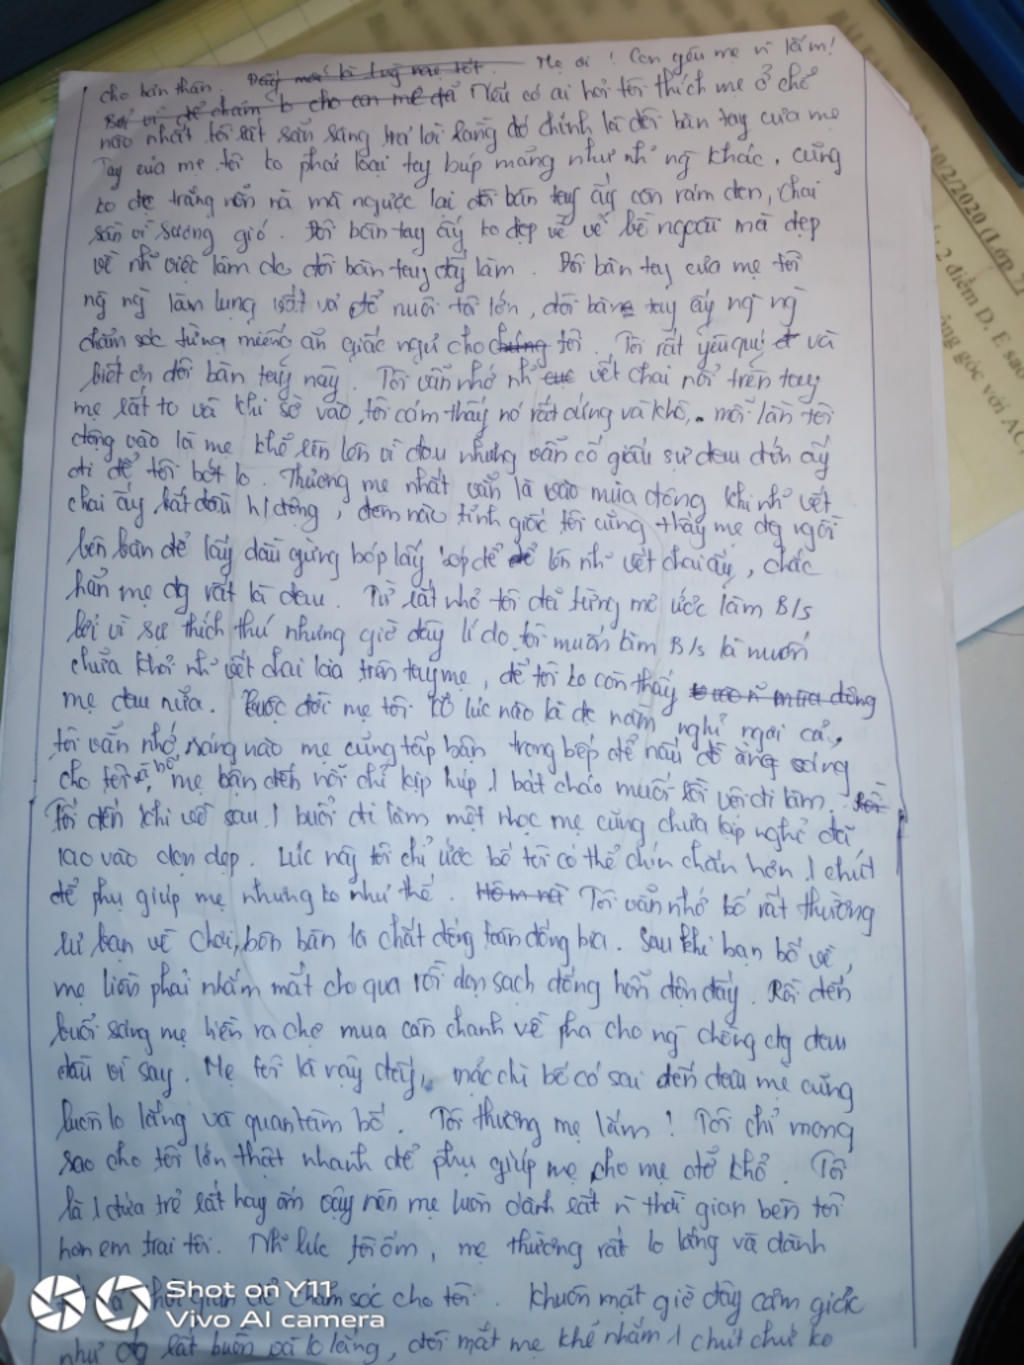 Mẹ ơi ! Con yêu mẹ n` lắm!
cho bản thân.
Nếu có ai hỏi tôi thích mẹ ở chỗ
nào nhất tôi rất sẵn sàng trả lời rằng đó chính là đôi bàn tay của mẹ
Tay của mẹ tôi ko phải loại tay búp măng như nh~ ng khác, cũng
ko trắng nõn nà mà ngược lại đôi bàn tay ấy còn rám đen, chai
sần vì sương gió. Đôi bàn tay ấy ko đẹp về vẻ bề ngoài mà đẹp
về nh~ việc làm do đôi bàn tay đấy làm. Đôi bàn tay của mẹ tôi
ng` ng` làm lụng vất vả để nuôi tôi lớn, đôi bàn tay ấy ng` ng`
chăm sóc từng miếng ăn giấc ngủ cho tôi. Tôi rất yêu quý và
biết ơn đôi bàn tay này. Tôi vẫn nhớ nh~ vết chai nổi trên tay
mẹ rất to và khi sờ vào tôi cảm thấy nó rất cứng và khô, mỗi lần tôi
động vào là mẹ khẽ lên vì đau nhưng vẫn cố giấu sự đau đớn ấy
đi để tôi bớt lo. Thương mẹ nhất vẫn là vào mùa đông khi nh~ vết
chai ấy bắt đầu h/động, đêm nào tỉnh giấc tôi cũng thấy mẹ đg ngồi
bên bàn để lấy dầu gừng bóp lấy bóp để nh~ vết chai ấy, chắc
hẳn mẹ đg rất là đau. Từ rất nhỏ tôi đã từng mơ ước làm B/s
bởi vì sự thích thú nhưng giờ đây lí do tôi muốn làm B/s là muốn
chữa khỏi nh~ vết chai của trên tay mẹ, để tôi ko còn thấy
mẹ đau nữa. Cuộc đời mẹ tôi ko lúc nào là đc nằm nghỉ ngơi cả,
tôi vẫn nhớ, sáng nào mẹ cũng tấp bận trong bếp để nấu đồ ăng sáng
cho tôi, mẹ bận đến nỗi chỉ kịp húp 1 bát cháo muối rồi vội đi làm.
Tối đến khi về sau 1 buổi đi làm mệt nhọc mẹ cũng chưa kịp nghỉ đã
lao vào dọn dẹp. Lúc này tôi chỉ ước bố tôi có thể chín chắn hơn 1 chút
để phụ giúp mẹ nhưng ko như thế. Tôi vẫn nhớ bố rất thường
rủ bạn về chơi, bên bàn là chất đống toàn đống bia. Sau khi bạn bố về,
mẹ liền phải nhắm mắt cho qua rồi dọn sạch đống hỗn độn đấy. Rồi đến
buổi sáng mẹ liền ra chợ mua cân chanh về pha cho ng` chồng đg đau
đầu vì say. Mẹ tôi là vậy đấy, mặc dù bố có sai đến đâu mẹ cũng
luôn lo lắng và quan tâm bố. Tôi thương mẹ lắm! Tôi chỉ mong
sao cho tôi lớn thật nhanh để phụ giúp mẹ, cho mẹ đỡ khổ. Tôi
là 1 đứa trẻ rất hay ốm vậy nên mẹ luôn dành rất n` thời gian bên tôi
hơn em trai tôi. Nh~ lúc tôi ốm, mẹ thường rất lo lắng và dành
thời gian để chăm sóc cho tôi. Khuôn mặt giờ đây cảm giác
như đg rất buồn và lo lắng, đôi mắt mẹ khẽ nhắm 1 chút chứ ko
Shot on Y11
Vivo AI camera
10/2/2020 (Lớp 7)
2 điểm D, E sao
góc với AC